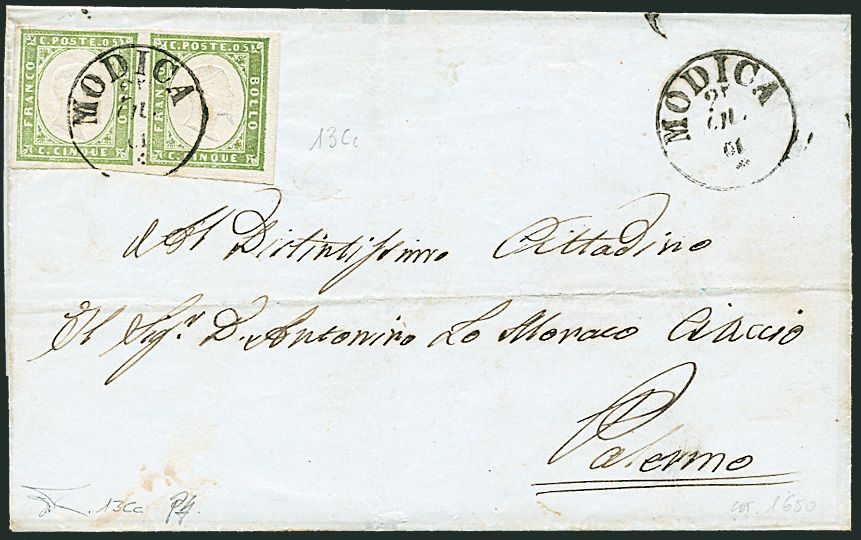 C. POSTE. 05 C. POSTE. 05
FRANCO BOLLO FRANCO BOLLO
C. CINQUE C. CINQUE
MODICA
LU.
61
MODICA
LU.
61
13Cc
Al Distintissimo Cittadino
Il Sigr. D. Antonino Lo Monaco Ciaccio
Palermo
13Cc
cot. 1650